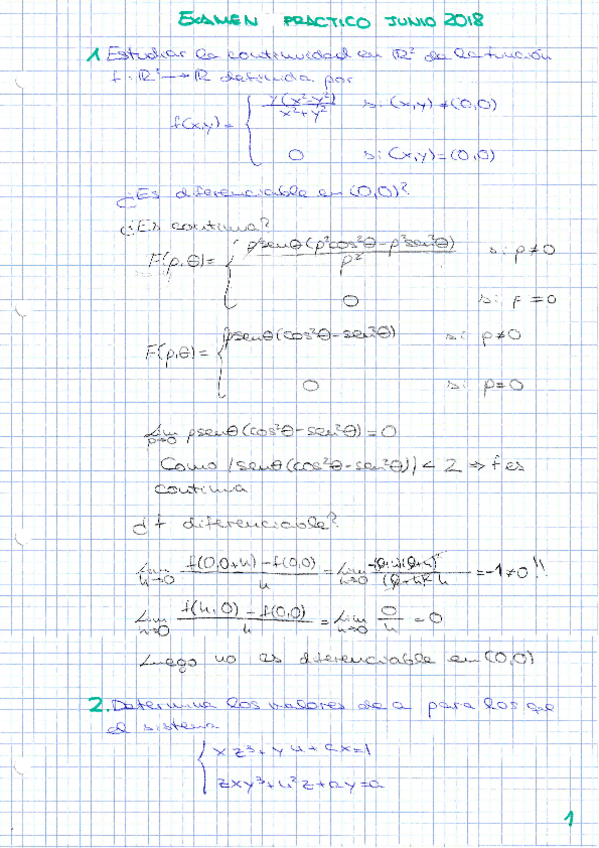 EXAMEN PRACTICO JUNIO 2018
1 Estudiar la continuidad en ℝ² de la función
f: ℝ² → ℝ definida por
f(x,y) = { y(x²-y²) / x²+y² si (x,y) ≠ (0,0)
0 si (x,y) = (0,0)
¿Es diferenciable en (0,0)?
¿Es continua?
F(ρ,θ) = { ρsenθ(ρ²cos²θ-ρ²sen²θ) / ρ² si ρ≠0
0 si ρ = 0
F(ρ,θ) = { ρsenθ(cos²θ-sen²θ) si ρ≠0
0 si ρ=0
Lim ρ→0 ρsenθ(cos²θ-sen²θ) = 0
Como |senθ(cos²θ-sen²θ)| < 2 ⇒ f es
continua
¿f diferenciable?
Lim h→0 f(0,0+h) - f(0,0) / h = Lim h→0 = -1 ≠ 0 !!
Lim h→0 f(h,0) - f(0,0) / h = Lim h→0 0 / h = 0
Luego no es diferenciable en (0,0)
2. Determina los valores de a para los que
el sistema
{ xz³ + yu + ax = 1
zxy³ + u²z + ay = a
1